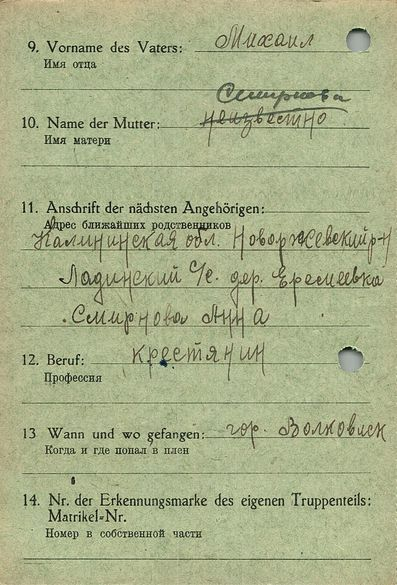 9. Vorname des Vaters: Михаил
Имя отца
Смирнова
10. Name der Mutter: неизвестно
Имя матери
11. Anschrift der nächsten Angehörigen:
Адрес ближайших родственников
Калининская обл. Новоржевский р-н
Ладинский с/с. дер. Еремеевка
Смирнова Анна
12. Beruf: крестянин
Профессия
13 Wann und wo gefangen: гор. Волковиск
Когда и где попал в плен
14. Nr. der Erkennungsmarke des eigenen Truppenteils:
Matrikel-Nr.
Номер в собственной части